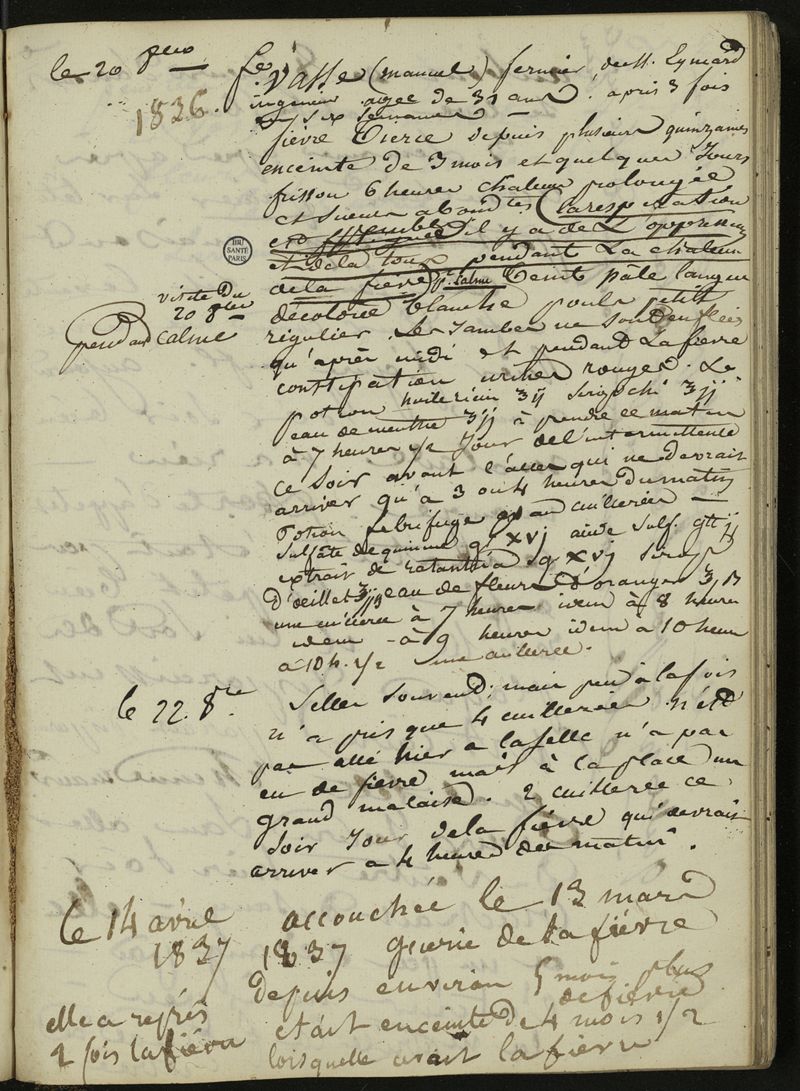 le 20 8bre
1836.
fe Vasse (manuel) fermier de M. Eymard
ingenieur agee de 31 ans. après 3 fois
six semaines
fièvre tierce depuis plusieurs quinzaines
enceinte de 3 mois et quelques jours
frisson 6 heures chaleur prolongée
et sueurs abondtes la respiration
est il y a de l'oppression
et de la toux pendant la chaleur
de la fièvre teint pâle langue
visite du
20 8bre
pendant calme
décolorée blanche pouls petit
régulier. les jambes ne sont enflées
qu'après midi et pendant la fièvre
constipation urines rouges. le
potion huile ricin ʒij sirop ʒij
eau de menthe ʒij à prendre ce matin
à 7 heures 1/2 jour de l'intermittence
ce soir avant l'accès qui ne devrait
arriver qu'à 3 ou 4 heures du matin
Potion febrifuge cuillerées
sulfate de quinine gr xvj acide sulf. gtt ij
extrait de ratanhia gr xvj sirop
d'oeillet eau de fleurs d'oranger
une cuillerée à 7 heures idem à 8 heures
idem à 9 heures idem à 10 heures
à 10 h. 1/2 une cuillerée.
le 22 8bre
Selles souvent mais peu à la fois
n'a pris que 4 cuillerées n'est
pas allé hier a la selle n'a pas
eu de fièvre mais à la place un
grand malaise. 2 cuillerée ce
soir jour de la fièvre qui devrait
arriver a 4 heures du matin.
le 14 avril
1837
accouchée le 13 mars
1837 guerie de la fièvre
depuis environ 5 mois plus
de fièvre
etait enceinte de 4 mois 1/2
lorsquelle avait la fièvre
elle a repris
2 fois la fièvre
BIU
SANTÉ
PARIS